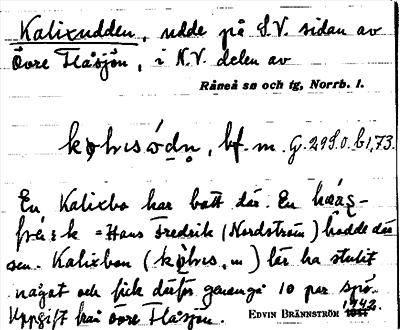 Kalixudden, udde på S.V. sidan av
Övre Flåsjön, i N.V. delen av
Råneå sn och tg, Norrb. l.
bf. m. G. 29 S.O. b1,73.
En Kalixbo har bott där. En
= Hans Fredrik (Nordström) bodde där
sen. Kalixbon ( .m) lär ha stulit
något och fick därför garanga 10 par spö.
Uppgift från Övre Flåsjön.
EDVIN BRÄNNSTRÖM 1942.